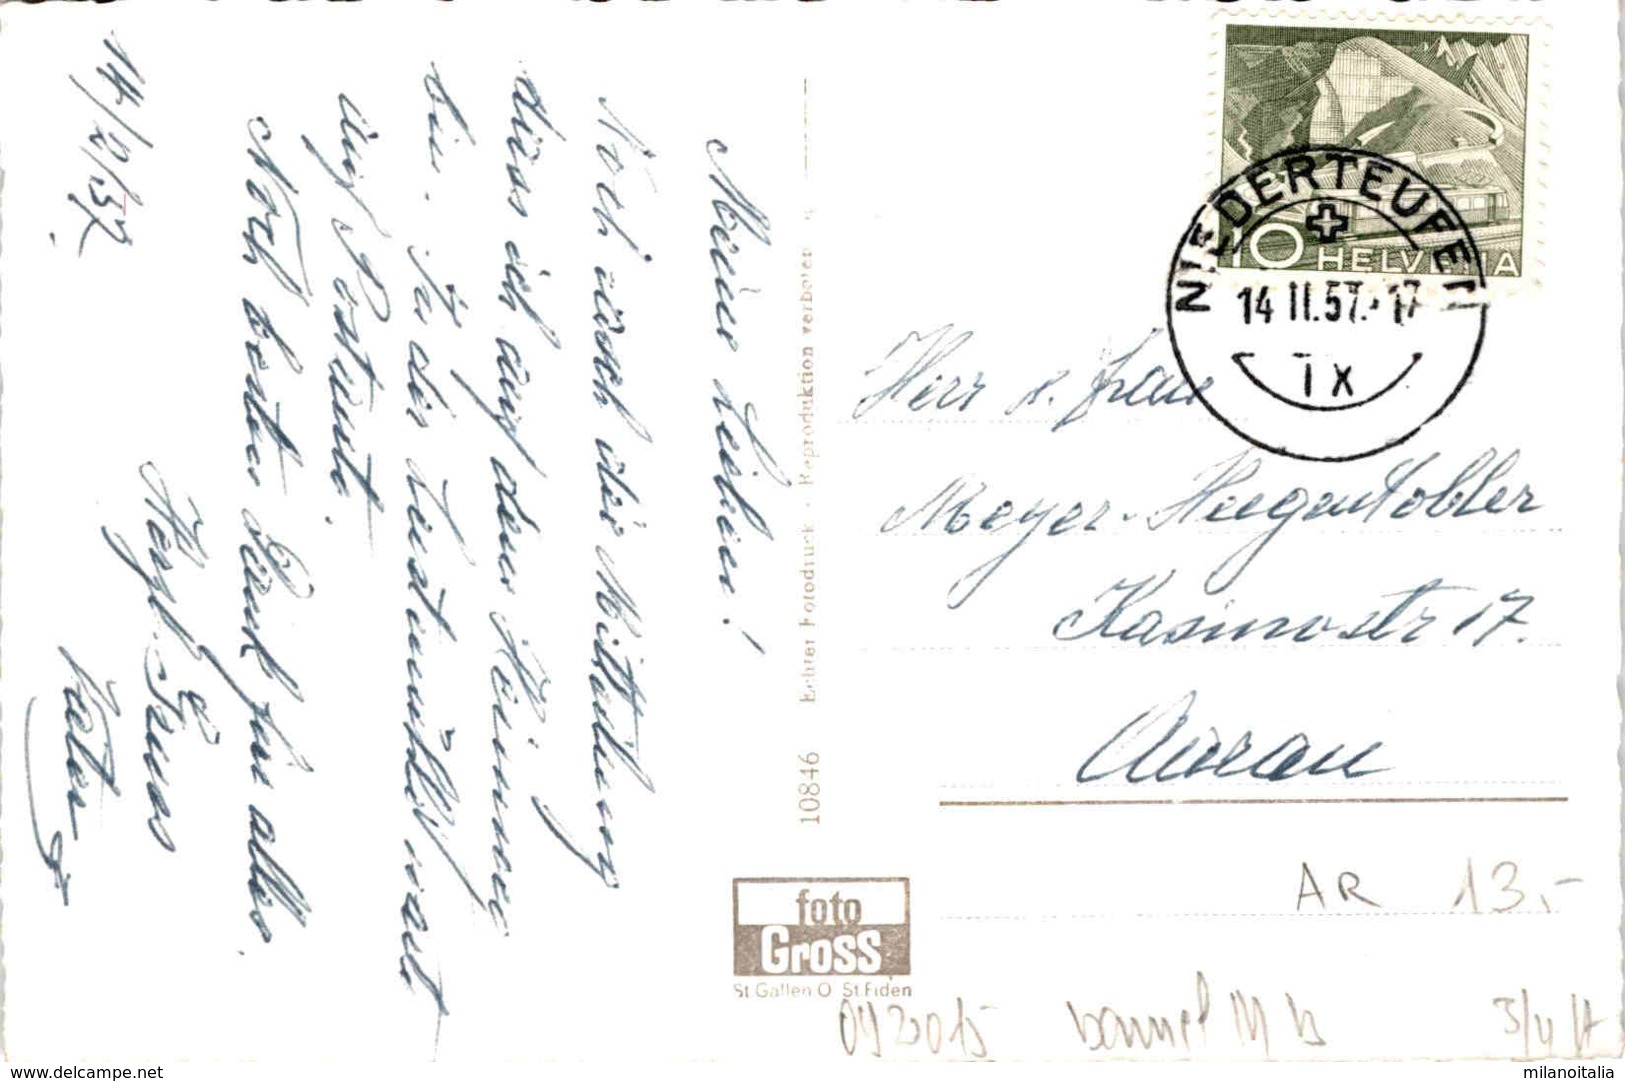 14/2/57
Meine Lieben!
Noch rasch die Mitteilung
dass ich auf dem Heimweg
bin. In der Lustmühle
auf Postauto.
Noch besten Dank für alles.
Herzl. Gruss
Vater
10846 Echter Fotodruck · Reproduktion verboten
foto
Gross
St. Gallen O St. Fiden
10 HELVETIA
NIEDERTEUFEN
14 II.57.-17
Herr u. Frau
Meyer-Hugentobler
Kasinostr 17.
Aarau
AR 13.-
092015
milanoitalia
www.delcampe.net